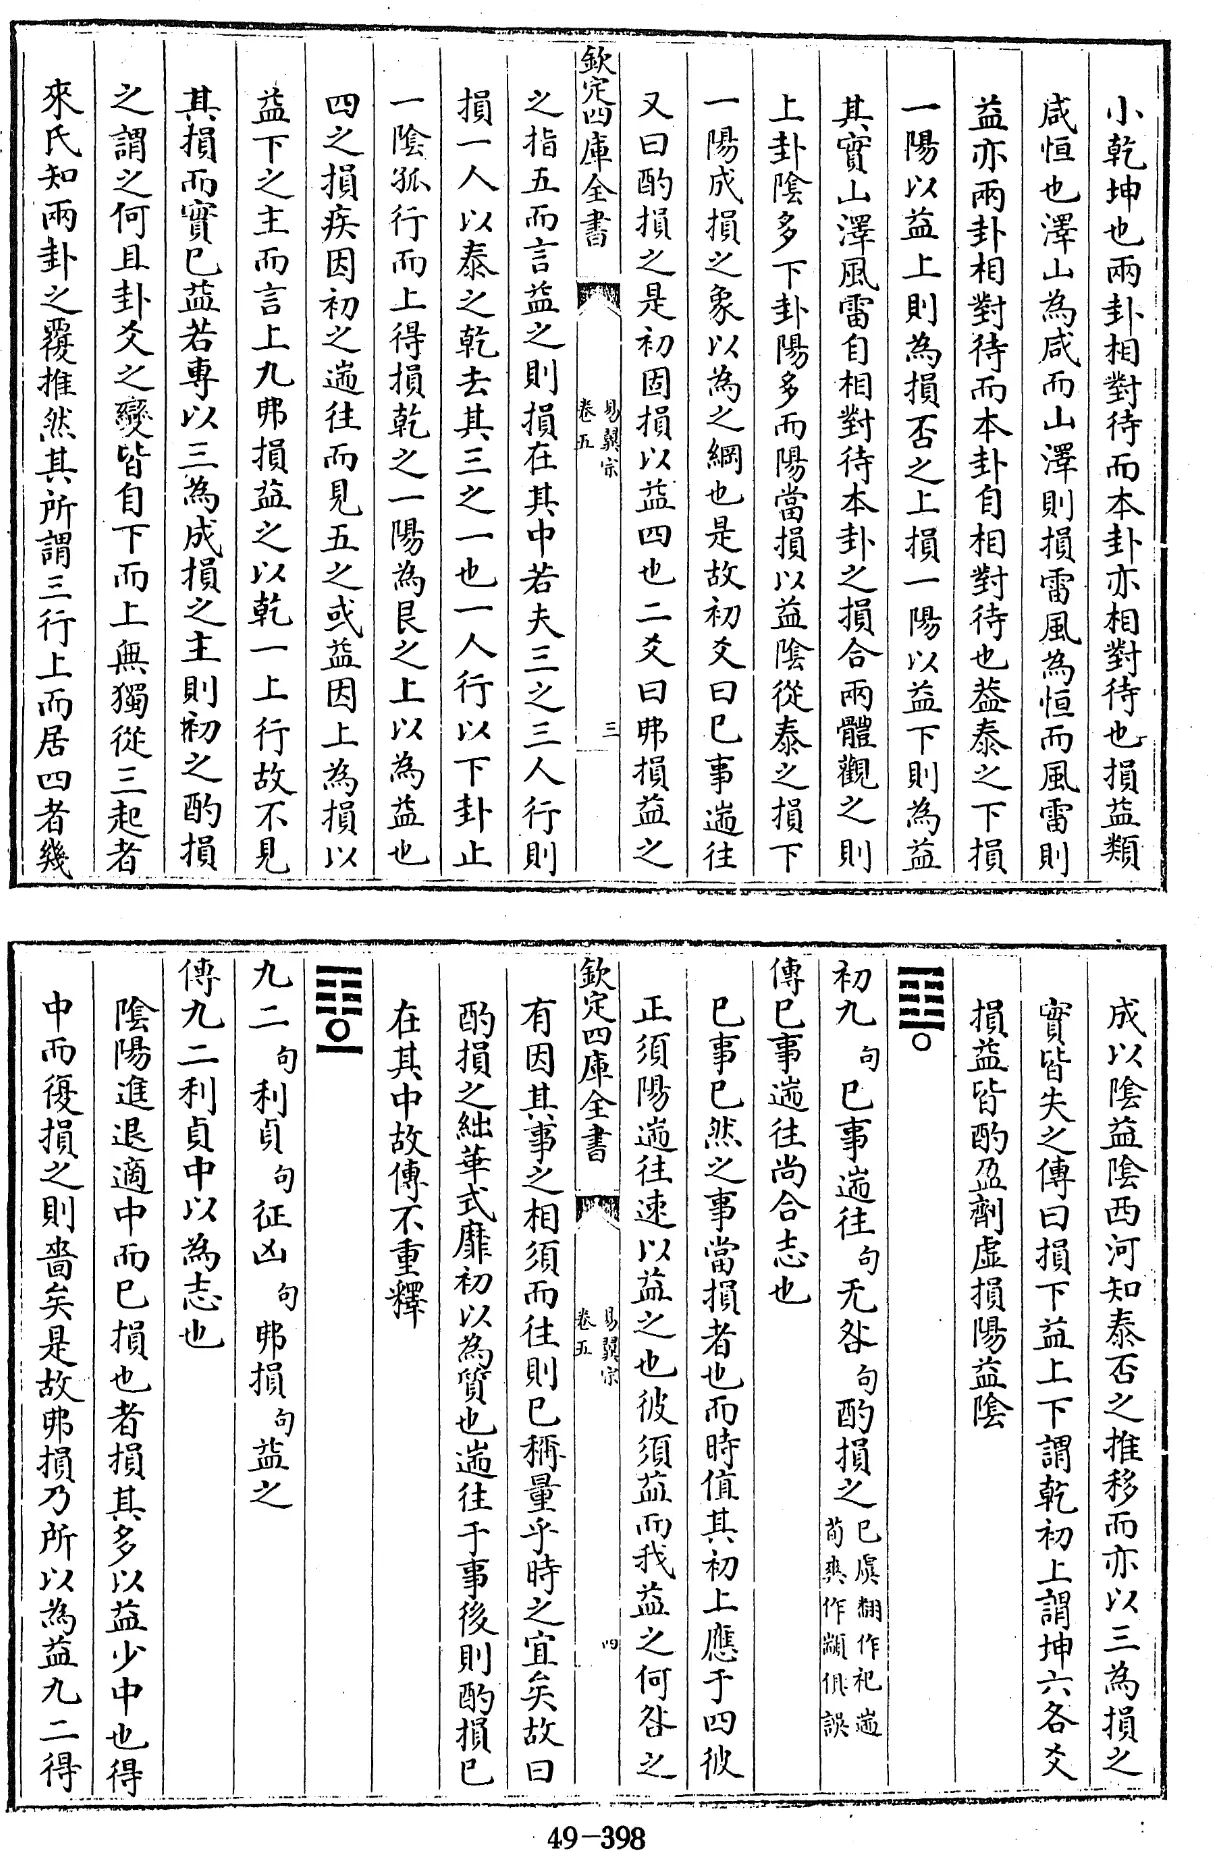 小乾坤也兩卦相對待而本卦亦相對待也損益類
咸恒也澤山為咸而山澤則損雷風為恒而風雷則
益亦兩卦相對待而本卦自相對待也葢泰之下損
一陽以益上則為損否之上損一陽以益下則為益
其實山澤風雷自相對待本卦之損合兩體觀之則
上卦陰多下卦陽多而陽當損以益陰從泰之損下
一陽成損之象以為之綱也是故初爻曰已事遄往
又曰酌損之是初固損以益四也二爻曰弗損益之
欽定四庫全書
易翼宗
卷五
三
之指五而言益之則損在其中若夫三之三人行則
損一人以泰之乾去其三之一也一人行以下卦止
一陰孤行而上得損乾之一陽為艮之上以為益也
四之損疾因初之遄往而見五之或益因上為損以
益下之主而言上九弗損益之以乾一上行故不見
其損而實已益若專以三為成損之主則初之酌損
之謂之何且卦爻之變皆自下而上無獨從三起者
來氏知兩卦之覆推然其所謂三行上而居四者幾
成以陰益陰西河知泰否之推移而亦以三為損之
實皆失之傳曰損下益上下謂乾初上謂坤六各爻
損益皆酌盈劑虛損陽益陰
初九句已事遄往句无咎句酌損之已虞翻作祀遄荀爽作顓俱誤
傳已事遄往尚合志也
已事已然之事當損者也而時值其初上應于四彼
正須陽遄往速以益之也彼須益而我益之何咎之
欽定四庫全書
易翼宗
卷五
四
有因其事之相須而往則已稱量乎時之宜矣故曰
酌損之絀華式靡初以為質也遄往于事後則酌損已
在其中故傳不重釋
九二句利貞句征凶句弗損句益之
傳九二利貞中以為志也
陰陽進退適中而已損也者損其多以益少中也得
中而復損之則嗇矣是故弗損乃所以為益九二得
49-398